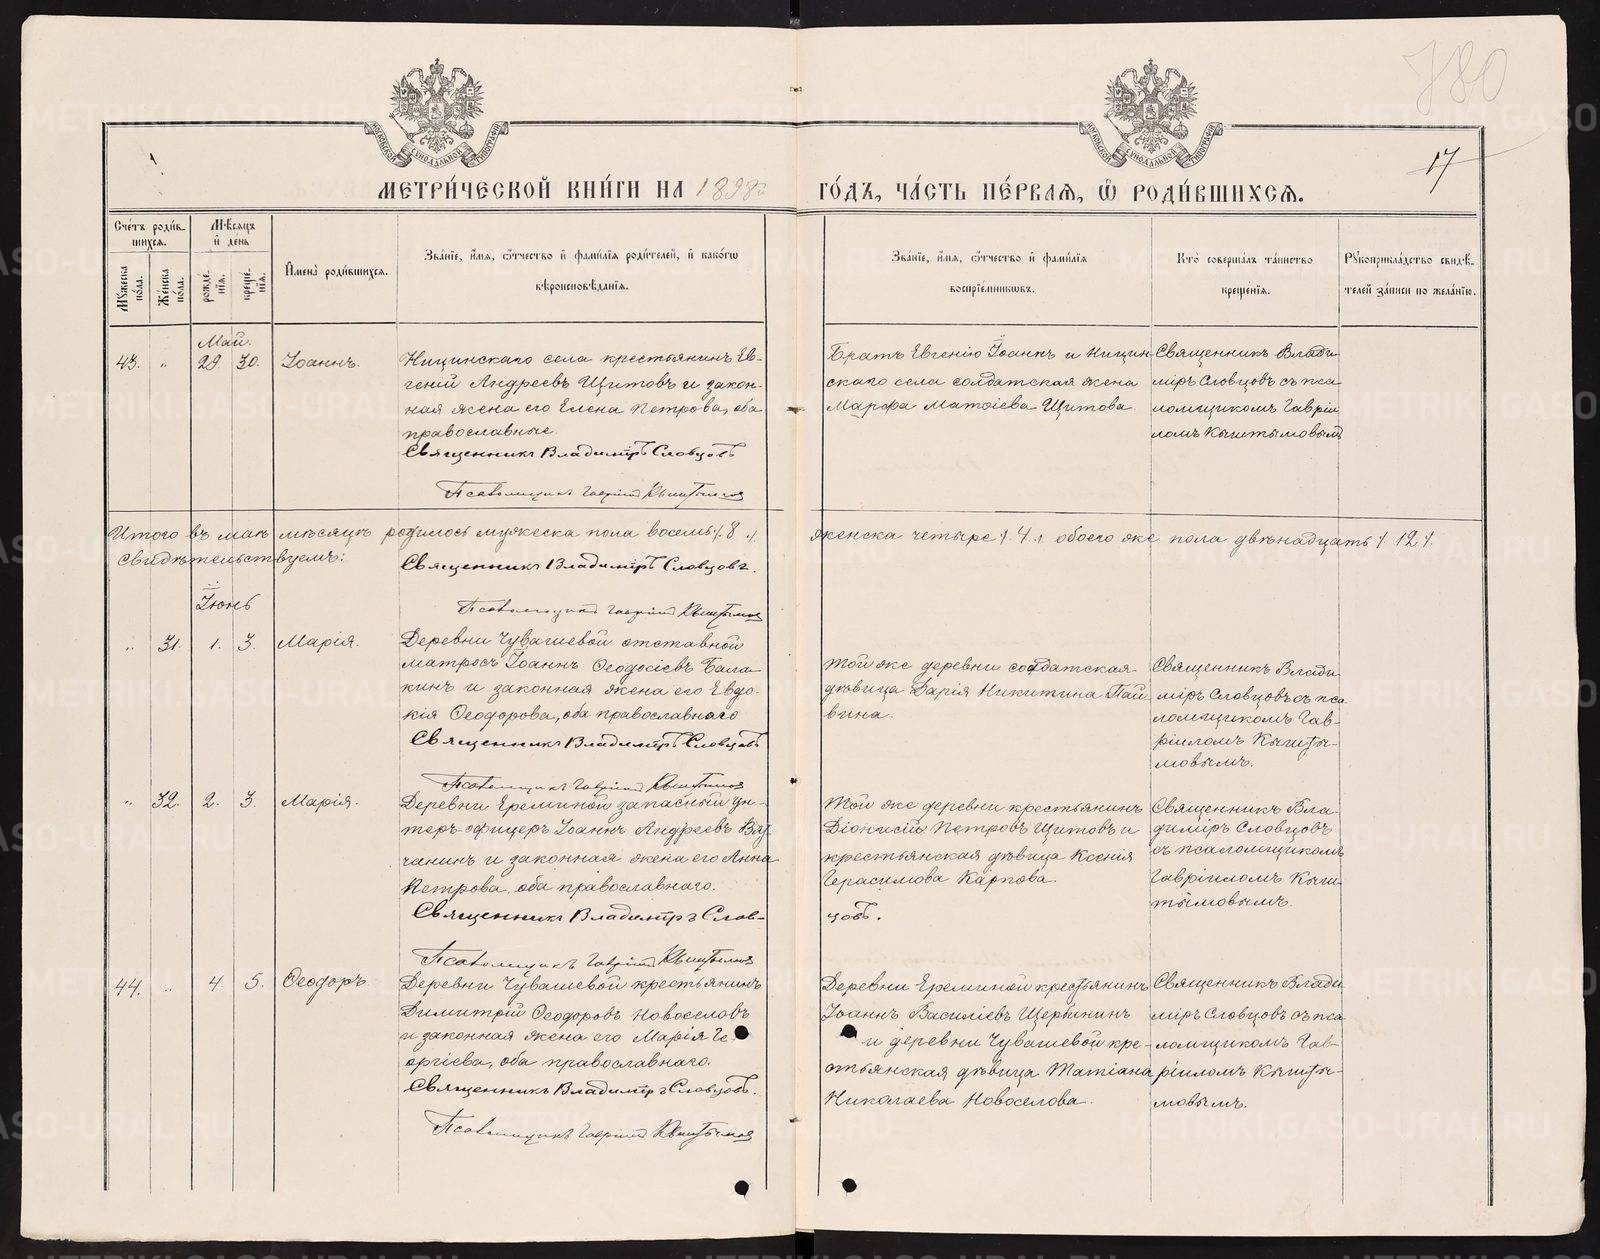 780
17
МОСКОВСКОЙ СѴНОДАЛЬНОЙ ТИПОГРАФІИ
МОСКОВСКОЙ СѴНОДАЛЬНОЙ ТИПОГРАФІИ
МЕТРИ́ЧЕСКОЙ КНИ́ГИ НА 1898 г. ГО́ДЪ, ЧА́СТЬ ПЕ́РВАЯ, Ѿ РОДИ́ВШИХСЯ.
Сче́тъ роди́в-
шихся.
Мꙋжеска по́ла.
Же́нска по́ла.
Мѣ́сяцъ и҆ де́нь
рожде́нїя.
креще́нїя.
И҆мена̀ роди́вшихся.
Зва́нїе, и҆́мя, ѻ҆́тчество и҆ фами́лїя роди́телей, и҆ како́гѡ
вѣроисповѣ́данїя.
Зва́нїе, и҆́мя, ѻ҆́тчество и҆ фами́лїя
воспрїе́мникѡвъ.
Кто̀ соверша́лъ та́инство
креще́нїя.
Рꙋкоприкла́дство свидѣ́-
телей за́писи по жела́нїю.
Май.
43. „ 29. 30. Іоаннъ.
Ницинскаго села крестьянинъ Ев-
геній Андреевъ Щитовъ и закон-
ная жена его Елена Петрова, оба
православные.
Священникъ Владиміръ Словцовъ
Псаломщикъ Гавріилъ Кыштымов
Братъ Евгенію Іоаннъ и Ницин-
скаго села солдатская жена
Марфа Матѳіева Щитова.
Священникъ Влади-
міръ Словцовъ съ пса-
ломщикомъ Гавріи-
ломъ Кыштымовымъ
Итого въ маѣ мѣсяцѣ родилось мужеска пола восемь /. 8 ./. женска четыре /. 4 ./. обоего же пола двѣнадцать /. 12 /.
Свидѣтельствуемъ: Священникъ Владиміръ Словцовъ.
Псаломщикъ Гавріилъ Кыштымов
Іюнь
„ 31. 1. 3. Марія.
Деревни Чувашевой отставной
матросъ Іоаннъ Ѳеодосіевъ Бала-
кинъ и законная жена его Евдо-
кія Ѳеодорова, оба православнаго
Священникъ Владиміръ Словцовъ
Псаломщикъ Гавріилъ Кыштымов
Той же деревни солдатская
дѣвица Дарія Никитина Пай-
вина.
Священникъ Влади-
міръ Словцовъ съ пса-
ломщикомъ Гав-
ріиломъ Кышты-
мовымъ.
„ 32. 2. 3. Марія.
Деревни Ереминой запасный ун-
теръ-офицеръ Іоаннъ Андреевъ Вят-
чанинъ и законная жена его Анна
Петрова, оба православнаго.
Священникъ Владиміръ Слов-
цовъ.
Псаломщикъ Гавріилъ Кыштымов
Той же деревни крестьянинъ
Діонисій Петровъ Щитовъ и
крестьянская дѣвица Ксенія
Герасимова Карпова.
Священникъ Вла-
диміръ Словцовъ
съ псаломщикомъ
Гавріиломъ Кыш-
тымовымъ.
44. „ 4. 5. Ѳеодоръ.
Деревни Чувашевой крестьянинъ
Димитрій Ѳеодоровъ Новоселовъ
и законная жена его Марія Ге-
оргіева, оба православнаго.
Священникъ Владиміръ Словцовъ.
Псаломщикъ Гавріилъ Кыштымов
Деревни Ереминой крестьянинъ
Іоаннъ Василіевъ Щербининъ
и деревни Чувашевой кре-
стьянская дѣвица Татіана
Николаева Новоселова.
Священникъ Влади-
міръ Словцовъ съ пса-
ломщикомъ Гав-
ріиломъ Кышты-
мовымъ.
METRIKI.GASO-URAL.RU